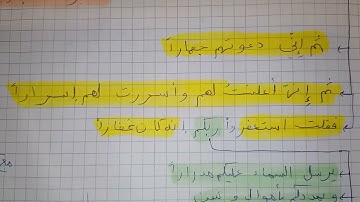 ثم إني دعوتهم جهاراً
ثم إني أعلنت لهم وأسررت لهم إسراراً
فقلت استغفروا ربكم إنه كان غفاراً
يرسل السماء عليكم مدراراً
ويمددكم بأموال وبنين